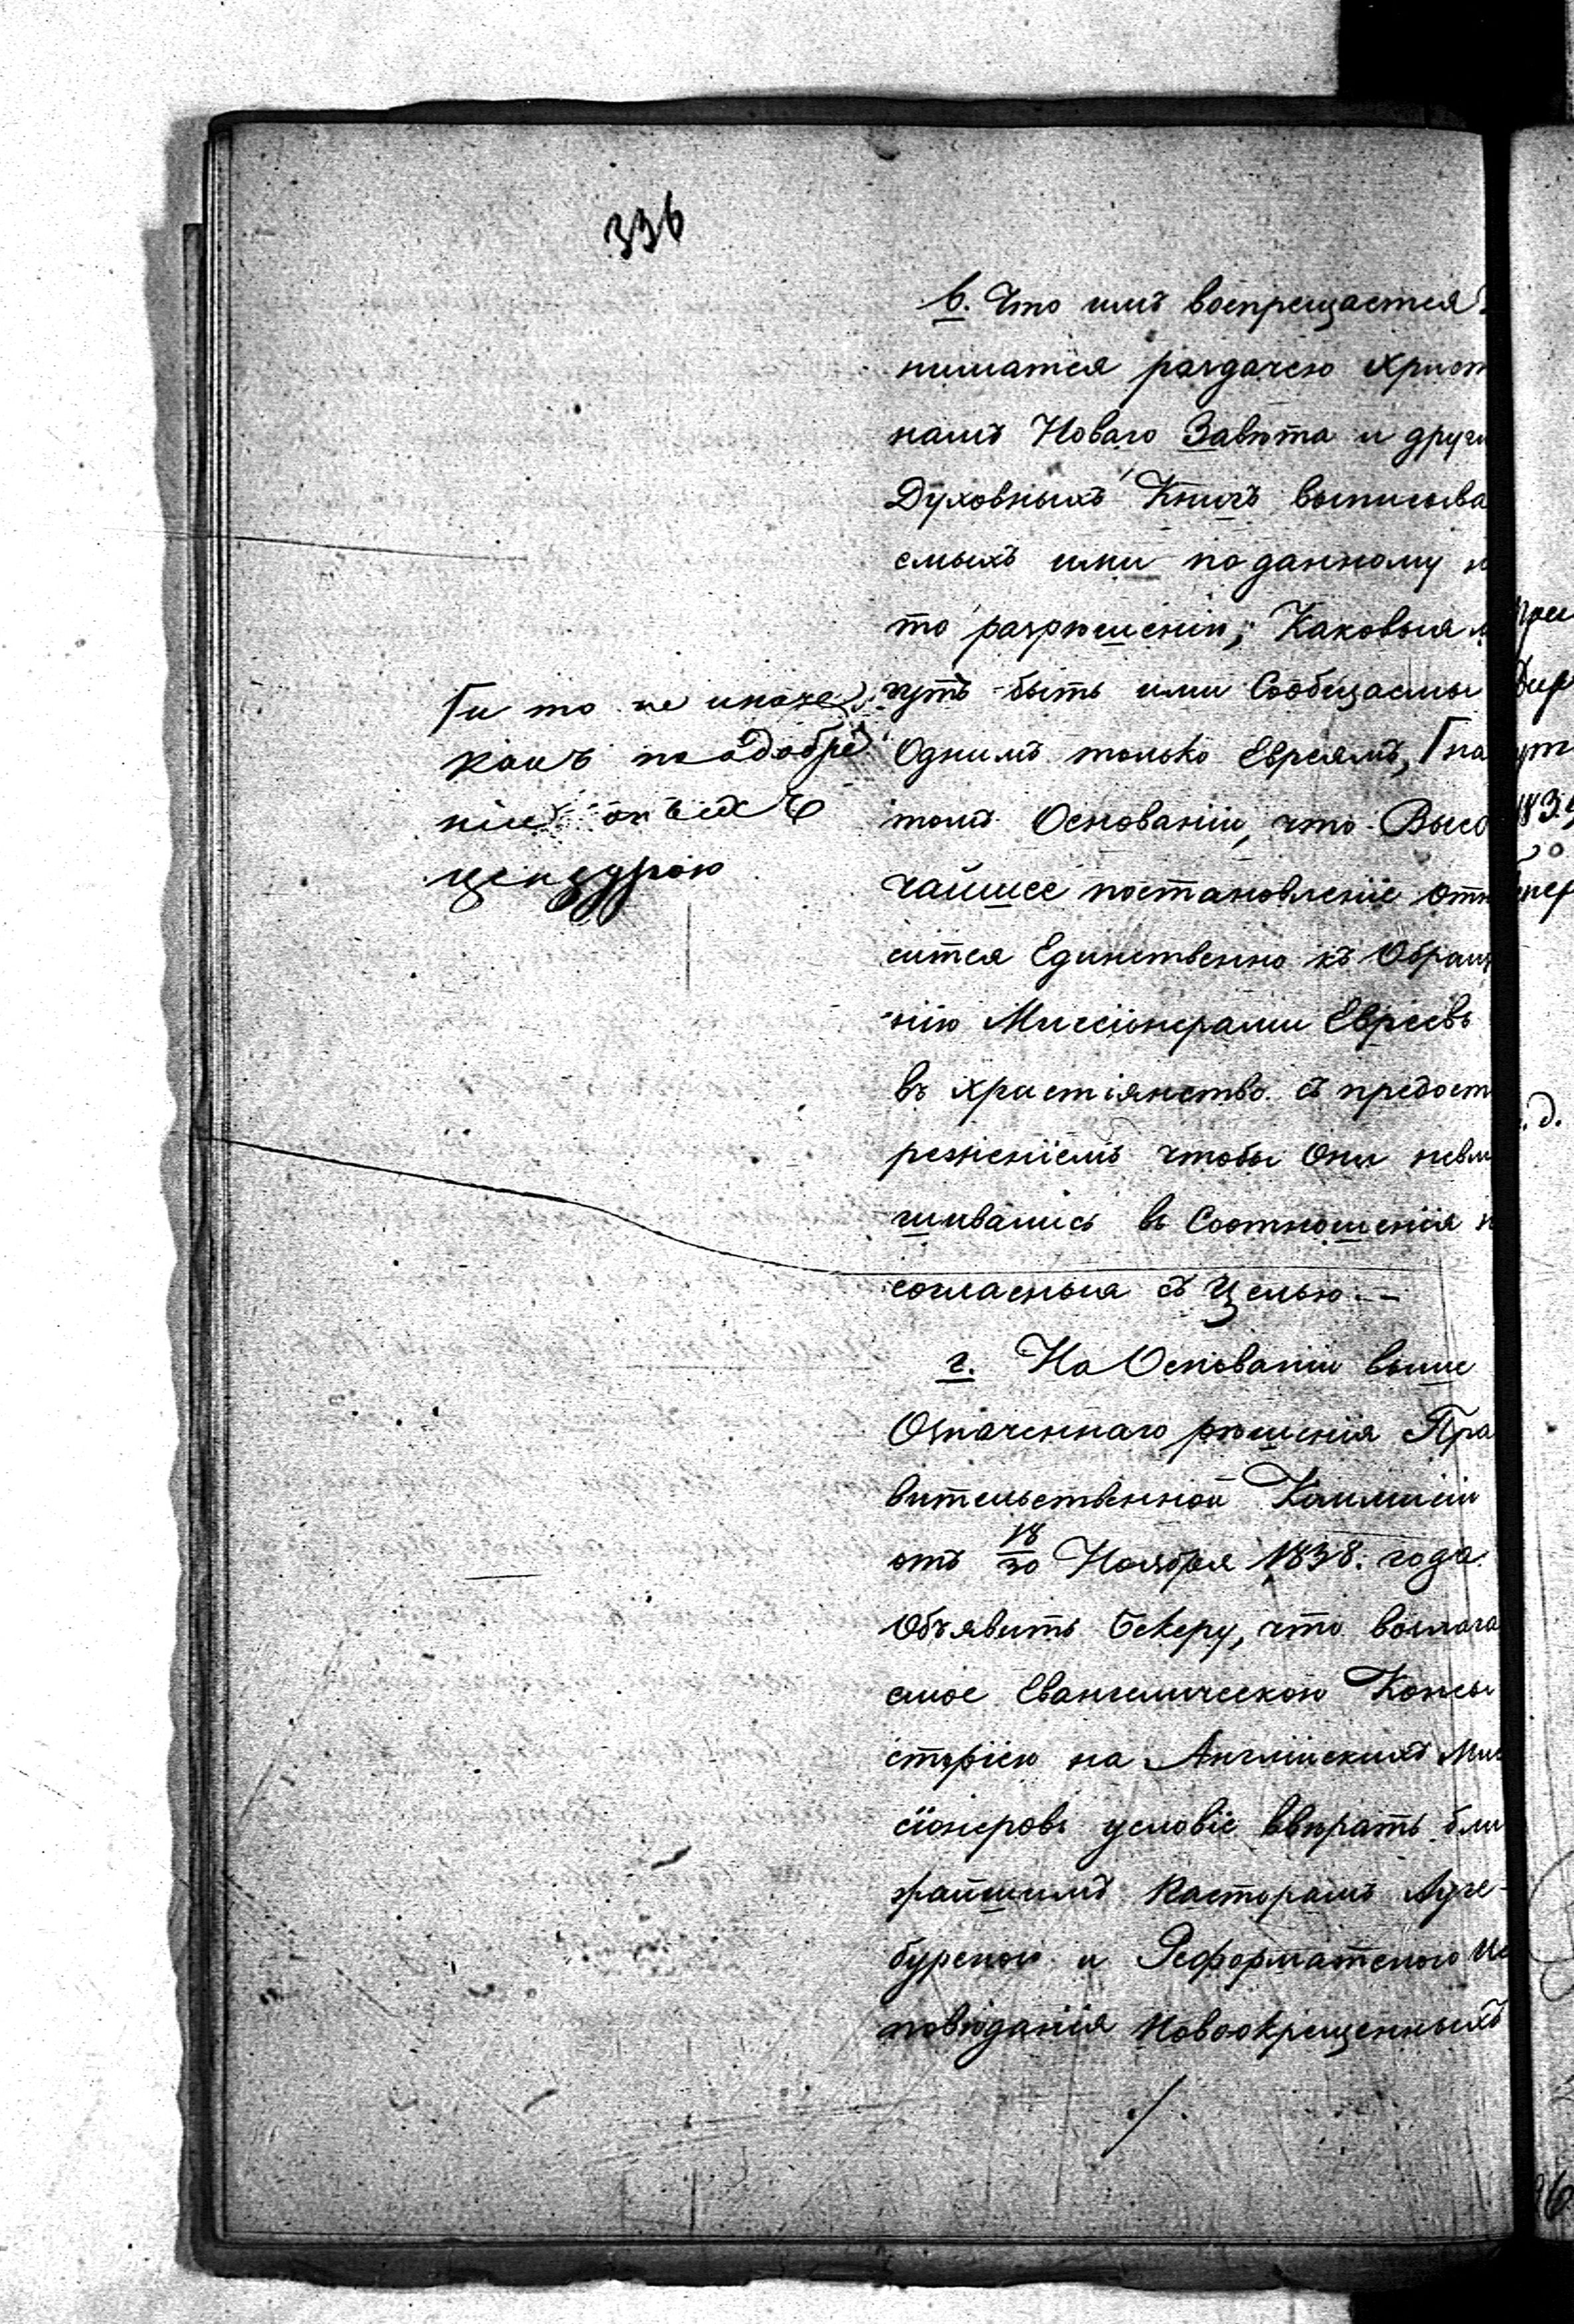 336
в. Что имъ воспрещается
ниматся раздачею Христ
намъ Новаго Завѣта и други
Духовныхъ Книгъ выписыва
емыхъ ими по данному н
то разрѣшенію; Каковыя м
гутъ быть ими Сообщаемы
Однимъ только Евреямъ, Г на
томъ Основаніи, что Высо
чайшее постановленіе отн
сится Единственно къ Обращ
нію Миссіонерами Евреевъ
въ христіянство съ предост
реженіемъ чтобы Они невм
шивались въ Соотношенія н
согласныя съ Целью.—
Г и то не иначе
какъ по одобре
ніи оныхъ
цензурою
г. На Основаніи выше
Означеннаго рѣшенія Пра
вительственной Коммисіи
отъ 18/30 Ноября 1838. года
Объявить Бекеру, что возлага
емое Евангелическою Консы
сторіею на Англійскихъ Мис
сіонеровъ условіе ввѣрать бли
жайшимъ Пасторамъ Аугс-
бурскою и Реформатскою Ис
повѣданія новоокрещенныхъ
./.